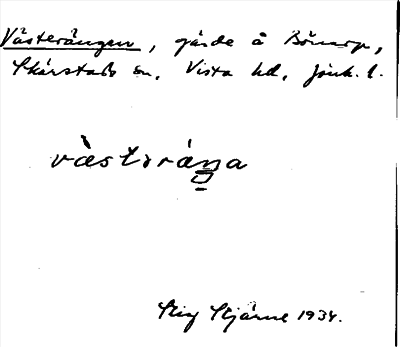 Västerängen, gärde å Bönarp,
Skärstads sn, Vista hd, Jönk. l.
västəräŋa
Stig Stjärne 1934.